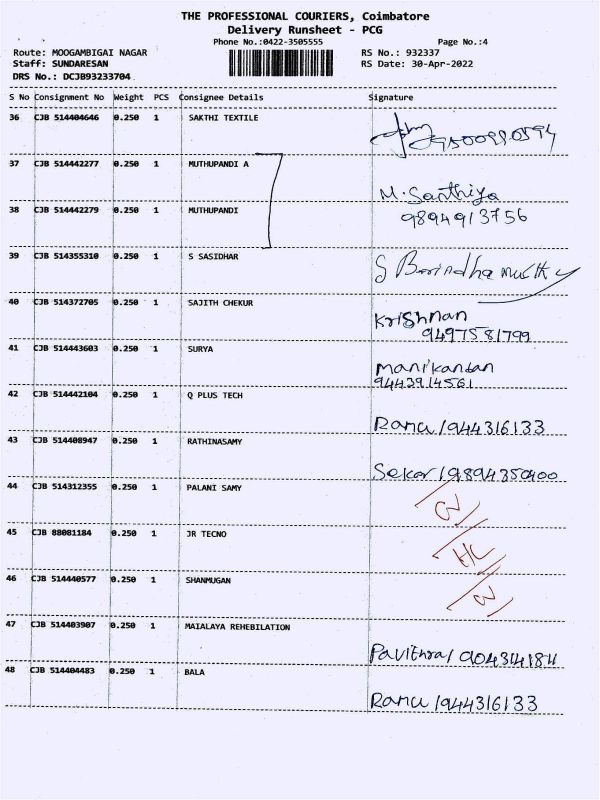 THE PROFESSIONAL COURIERS, Coimbatore
Delivery Runsheet - PCG
Phone No.:0422-3505555 Page No.:4
Route: MOOGAMBIGAI NAGAR RS No.: 932337
Staff: SUNDARESAN RS Date: 30-Apr-2022
DRS No.: DCJB93233704
S No Consignment No Weight PCS Consignee Details Signature
36 CJB 514404646 0.250 1 SAKTHI TEXTILE
37 CJB 514442277 0.250 1 MUTHUPANDI A
M. Santhiya
38 CJB 514442279 0.250 1 MUTHUPANDI 9894913756
39 CJB 514355310 0.250 1 S SASIDHAR
40 CJB 514372705 0.250 1 SAJITH CHEKUR
Krishnan
9497581799
41 CJB 514443603 0.250 1 SURYA
Manikandan
9443914561
42 CJB 514442104 0.250 1 Q PLUS TECH
Ramu/944316133
43 CJB 514408947 0.250 1 RATHINASAMY
Sekar/9894350400
44 CJB 514312355 0.250 1 PALANI SAMY
45 CJB 88081184 0.250 1 JR TECNO
46 CJB 514440577 0.250 1 SHANMUGAN
47 CJB 514403907 0.250 1 MAIALAYA REHEBILATION
Pavithra/
48 CJB 514404483 0.250 1 BALA
Ramu/944316133